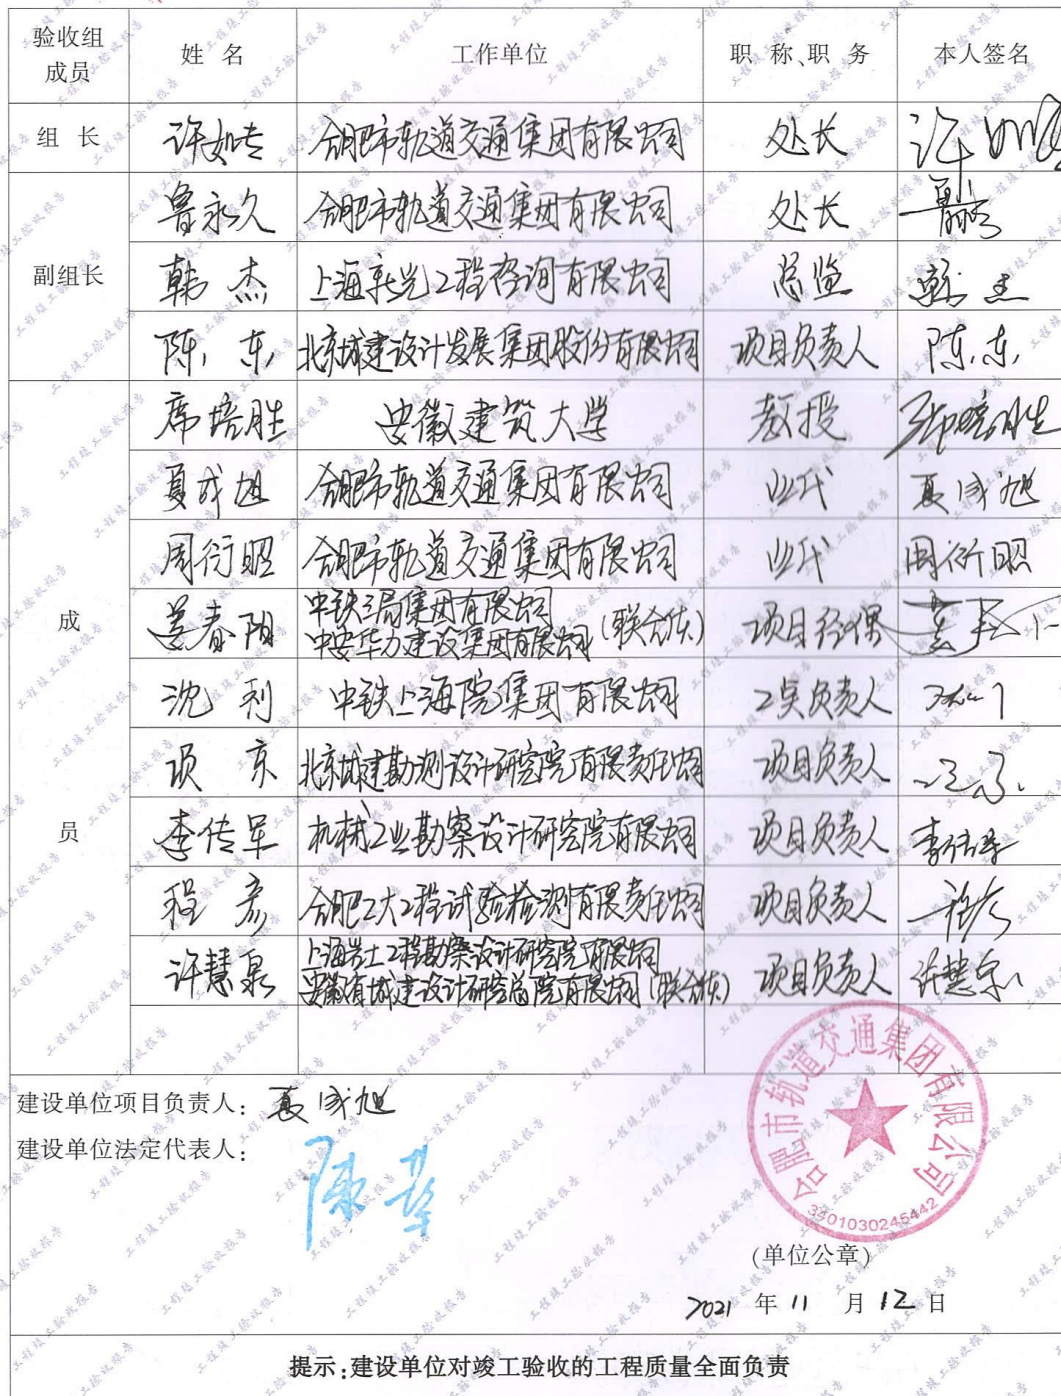 验收组成员 姓名 工作单位 职称、职务 本人签名
组长 许如专 合肥市轨道交通集团有限公司 处长
副组长
鲁永久 合肥市轨道交通集团有限公司 处长
韩杰 上海新光工程咨询有限公司 总监 韩杰
陈东 北京城建设计发展集团股份有限公司 项目负责人 陈东
成员
席培胜 安徽建筑大学 教授 席培胜
夏成旭 合肥市轨道交通集团有限公司 业代 夏成旭
周衍昭 合肥市轨道交通集团有限公司 业代 周衍昭
姜春阳 中铁三局集团有限公司
中安华力建设集团有限公司(联合体) 项目经理
沈利 中铁上海院集团有限公司 工点负责人
项京 北京城建勘测设计研究院有限责任公司 项目负责人
李传军 机械工业勘察设计研究院有限公司 项目负责人 李传军
程彦 合肥工大工程试验检测有限责任公司 项目负责人 程彦
许慧泉 上海岩土工程勘察设计研究院有限公司
安徽省城建设计研究总院有限公司(联合体) 项目负责人 许慧泉
建设单位项目负责人: 夏成旭
建设单位法定代表人:
合肥市轨道交通集团有限公司
3401030245442
(单位公章)
2021 年 11 月 12 日
提示:建设单位对竣工验收的工程质量全面负责
工程竣工验收报告